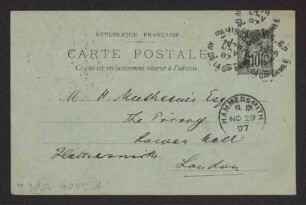 RÉPUBLIQUE FRANÇAISE
CARTE POSTALE
Ce côté est exclusivement réservé à l'adresse.
M. H. Muthesius Esq
The Priory
Lower Mall
Hammersmith
London
HAMMERSMITH
NO 29
97